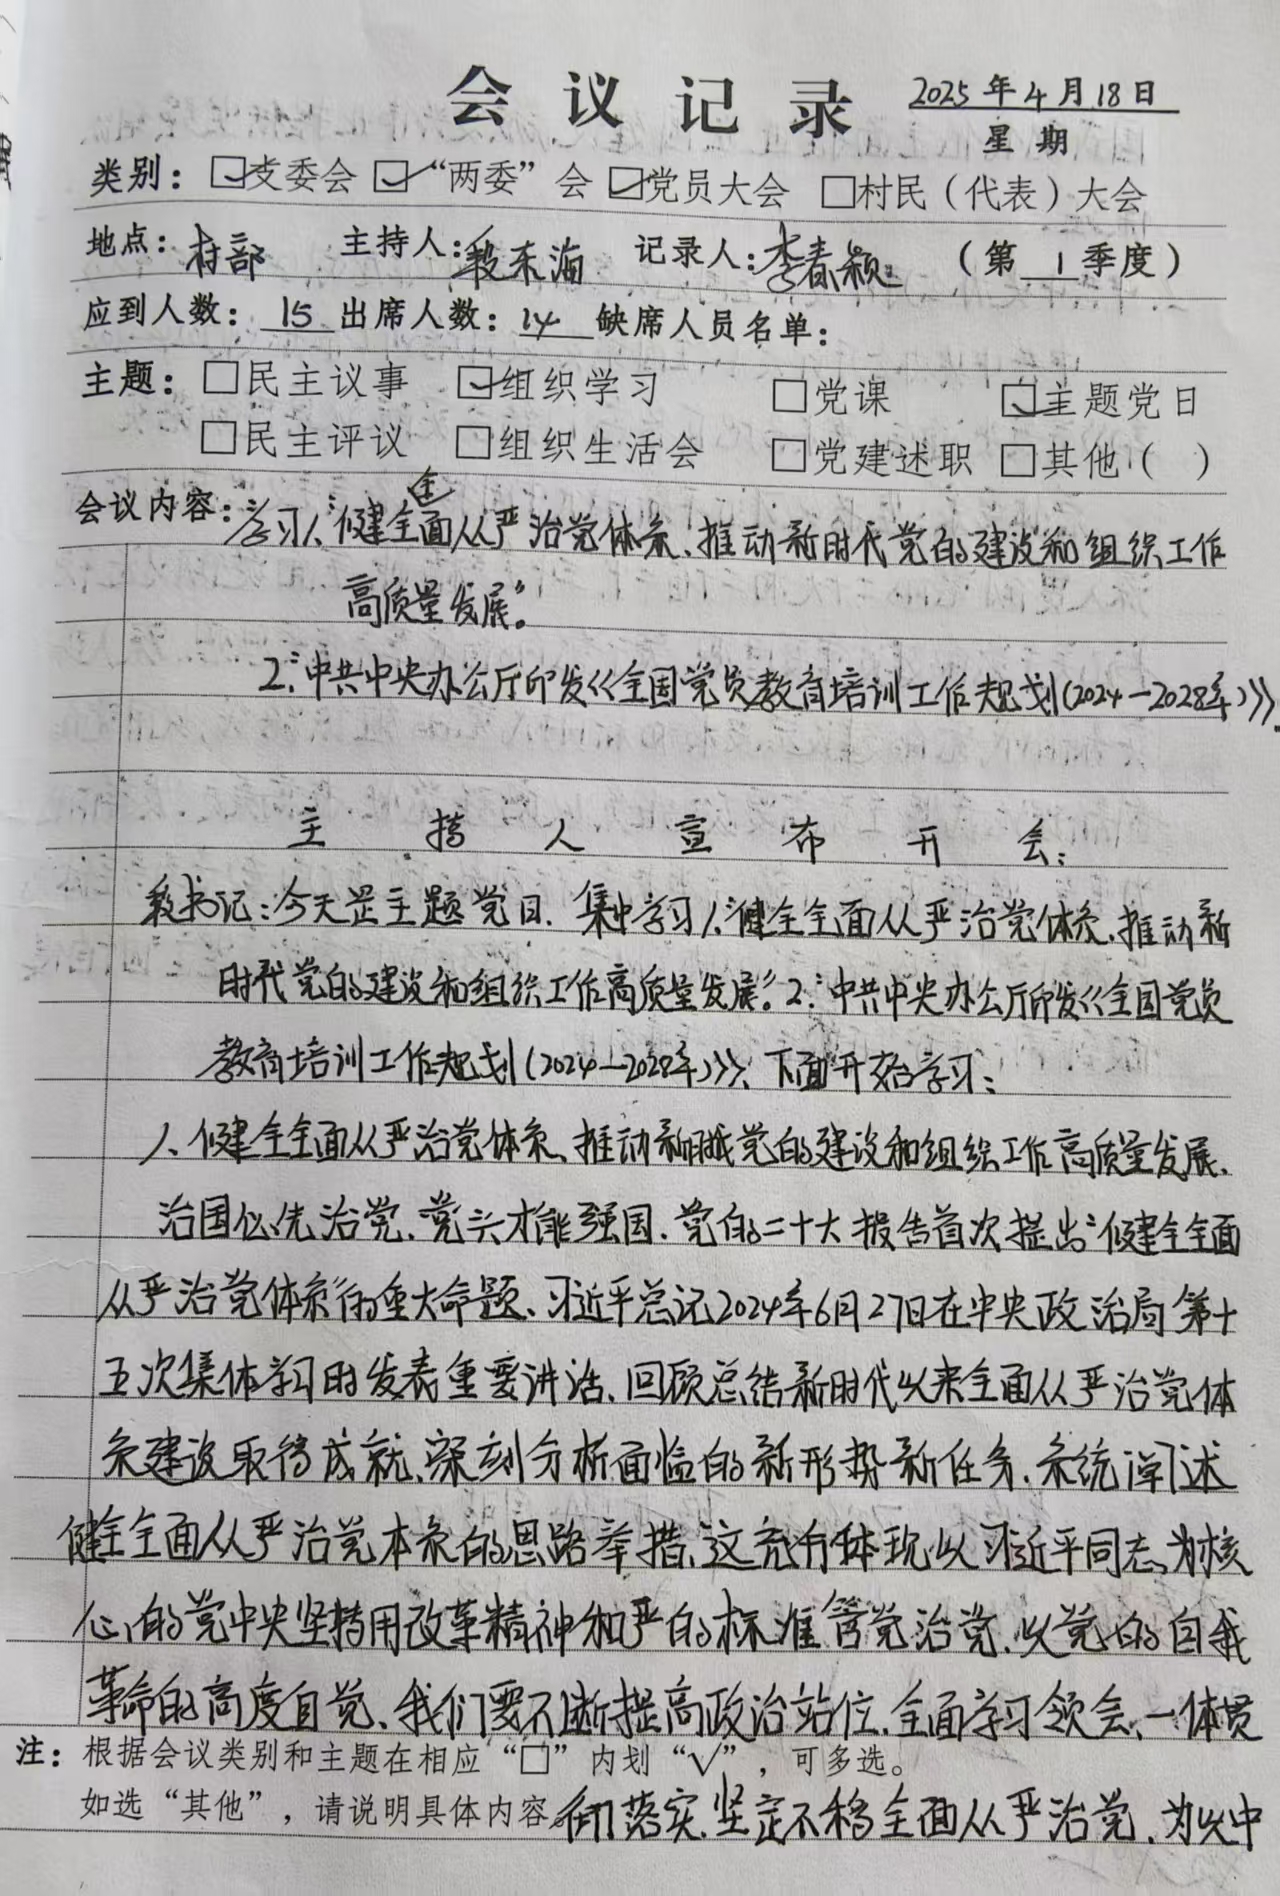 会议记录 2025年4月18日
星期
类别：☑支委会 ☑“两委”会 ☑党员大会 □村民（代表）大会
地点：村部 主持人：段东海 记录人：李春颖 （第1季度）
应到人数：15 出席人数：14 缺席人员名单：
主题：□民主议事 ☑组织学习 □党课 ☑主题党日
□民主评议 □组织生活会 □党建述职 □其他（ ）
会议内容：学习1、“健全全面从严治党体系、推动新时代党的建设和组织工作
高质量发展”。
2、“中共中央办公厅印发《全国党员教育培训工作规划(2024—2028年)》
主持人宣布开会：
段书记：今天是主题党日、集中学习1、“健全全面从严治党体系、推动新
时代党的建设和组织工作高质量发展”。2、“中共中央办公厅印发《全国党员
教育培训工作规划(2024—2028年)》、下面开始学习：
1、健全全面从严治党体系、推动新时代党的建设和组织工作高质量发展、
治国必先治党、党兴才能强国、党的二十大报告首次提出“健全全面
从严治党体系”的重大命题、习近平总记2024年6月27日在中央政治局第十
五次集体学习时发表重要讲话、回顾总结新时代以来全面从严治党体
系建设取得成就、深刻分析面临的新形势新任务、系统阐述
健全全面从严治党本系的思路举措、这充分体现以习近平同志为核
心的党中央坚持用改革精神和严的标准管党治党、以党的自我
革命的高度自觉、我们要不断提高政治站位、全面学习领会、一体贯
注：根据会议类别和主题在相应“□”内划“√”，可多选。
如选“其他”，请说明具体内容。
彻落实、坚定不移全面从严治党、为以中